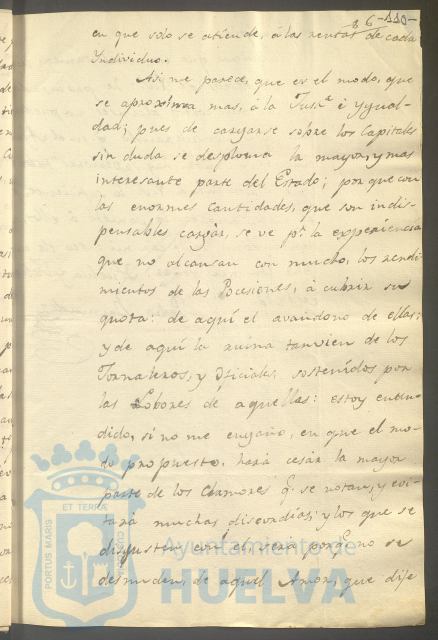 86-110-
en que solo se atiende, á las rentas de cada
Individuo.
Asi me parece, que es el modo, que
se aproxima mas, á la Just.ª é ygual-
dad; pues de cargarse sobre los Capitales
sin duda se desploma la mayor, y mas
interesante parte del Estado; porque con
las enormes Cantidades, que son indis-
pensables cargar, se ve p.r la experiencia
que no alcansan con mucho, los rendi-
mientos de las Pocesiones, á cubrir su
quota: de aquí el avandono de ellas;
y de aquí la ruina tanvien de los
Jornaleros, y Oficiales sostenídos por
las Lobores de aquellas: estoy enten-
dido, si no me engaño, en que el mo-
do propuesto, hará cesar la mayor
parte de los Clamores q. se notan, y evi-
tará muchas discordias; y los que se
disgusten con el, será porq. no se
desnuden, de aquel Amor, que dije
PORTUS MARIS
ET TERRÆ
CUSTODIA
Ayuntamiento de
HUELVA